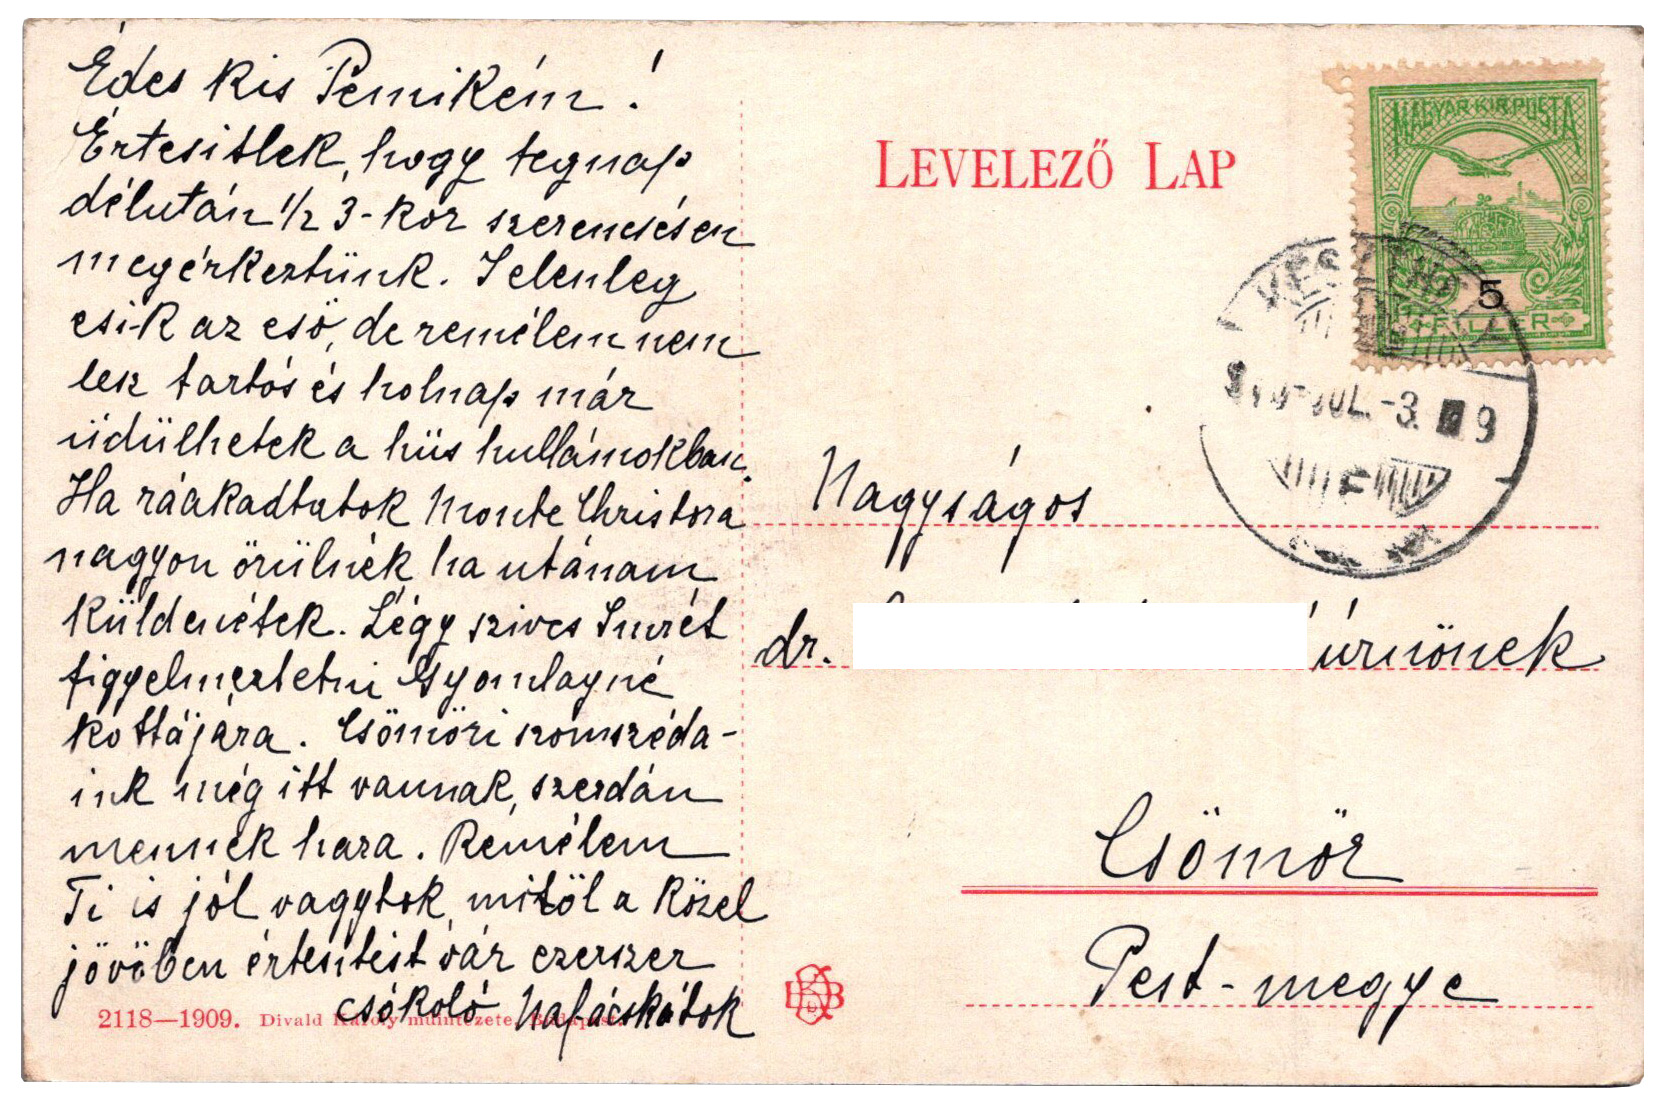 Édes kis Pemikém!
Értesitlek, hogy tegnap
délután 1/2 3-kor szerencsésen
megérkeztünk. Jelenleg
esik az eső, de remélem nem
lesz tartós és holnap már
üdülhetek a hüs hullámokban.
Ha ráakadtatok Monte Christora
nagyon örülnék ha utánam
küldenétek. Légy szives Imrét
figyelmeztetni Gyomlayné
kottájára. Csömöri szomszéda-
ink még itt vannak, szerdán
mennek haza. Remélem
Ti is jól vagytok, mitöl a közel
jövöben értesitést vár ezerszer
csókoló
2118—1909. Divald Károly műintézete, Budapest.
LEVELEZŐ LAP
MAGYAR·KIR·POSTA
5
FILLÉR
JUL. -3. 9
Nagyságos
dr. úrnönek
Csömör
Pest-megye